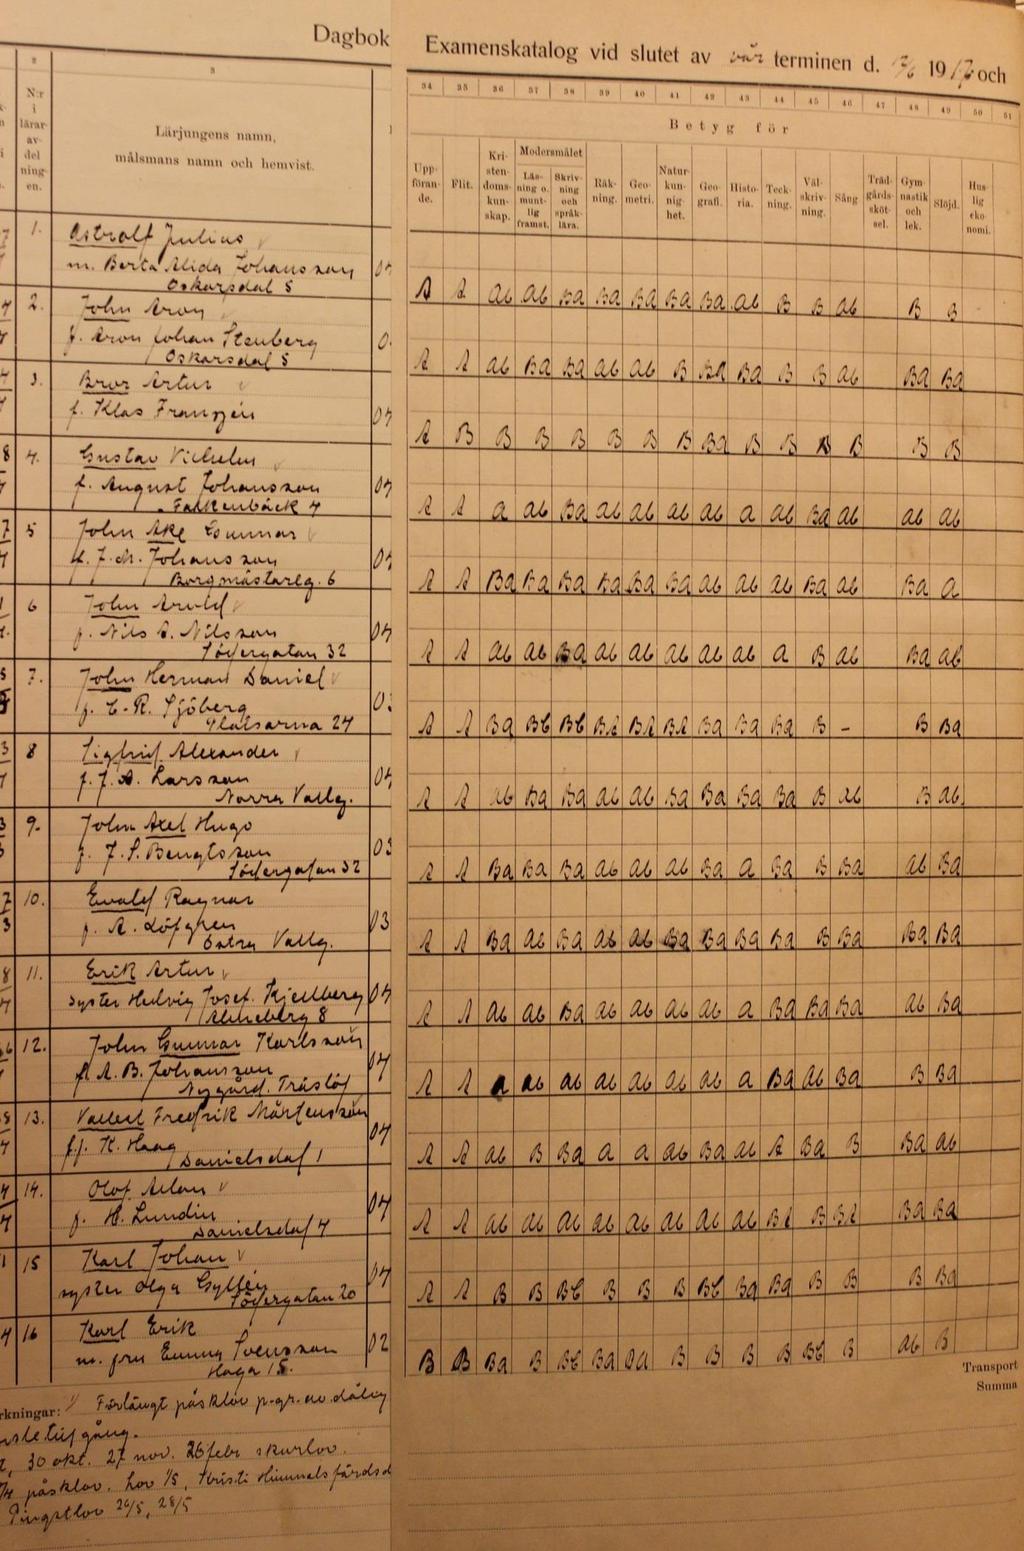 Dagbok
Examenskatalog vid slutet av vår terminen d. 7/6 1917 och
2 3
N:r i lärar-av-del ning-en.
Lärjungens namn,
målsmans namn och hemvist.
34 35 36 37 38 39 40 41 42 43 44 45 46 47 48 49 50 51
Betyg för
Modersmålet
Upp-föran-de. Flit. Kri-sten-doms-kun-skap. Läs-ning o. munt-lig framst. Skriv-ning och språk-lära. Räk-ning. Geo-metri. Natur-kun-nig-het. Geo-grafi. Histo-ria. Teck-ning. Väl-skriv-ning. Sång Träd-gårds-sköt-sel. Gym-nastik och lek. Slöjd. Hus-lig eko-nomi.
1. Astrolf Julius
m. Berta Alida Johansson
Oskarsdal 5
A A ab ab Ba Ba Ba Ba Ba ab B B ab B B
2. John Aron
f. Aron Johan Stenberg
Oskarsdal 5
A A ab Ba Ba ab ab B Ba Ba B B ab Ba Ba
3. Bror Artur
f. Klas Franzén
A B B B B B B B Ba B B B B B B
4. Gustav Vilhelm
f. August Johansson
Falkenbäck 4
A A a ab Ba ab ab ab ab a ab Ba ab ab ab
5 John Åke Gunnar
f. J. M. Johansson
Borgmästareg. 6
A A Ba Ba Ba Ba Ba Ba ab ab ab Ba ab Ba a
6 John Arvid
f. Nils A. Nilsson
Södergatan 32
A A ab ab Ba ab ab ab ab ab a B ab Ba ab
7. John Herman Daniel
f. C. R. Sjöberg
Platsarna 24
A A Ba Bb Bb Ba Ba Ba Ba Ba Ba B - B Ba
8 Sigfrid Alexander
f. J. A. Larsson
Norra Vallg.
A A ab Ba Ba ab ab Ba Ba Ba Ba B ab B ab
9. John Axel Hugo
f. J. S. Bengtsson
Södergatan 32
A A Ba Ba Ba ab ab ab Ba a Ba B Ba ab Ba
10. Evald Ragnar
f. A. Löfgren
Östra Vallg.
A A Ba ab Ba ab ab Ba Ba Ba Ba B Ba Ba Ba
11. Erik Artur
syster Hedvig Josef. Kjellberg
8
A A ab ab Ba ab ab ab ab a Ba Ba Ba ab Ba
12. John Gunnar Karlsson
f. A. B. Johansson
Nygård, Träslöf
A A a ab ab ab ab ab ab a Ba ab Ba B Ba
13. Valbert Fredrik Mårtensson
K. Haag
Danielsdal 1
A A ab B Ba a a ab Ba ab A Ba B Ba ab
14. Olof Allan
f. H. Lundin
Danielsdal 4
A A ab ab ab ab ab ab ab ab Ba B Ba Ba Ba
15 Karl Johan
syster Olga Gyllén
Södergatan 20
A A B B Bb B B B Bb Ba Ba B B B Ba
16 Karl Erik
m. fru Emma Svensson
Haga 15.
B B Ba B Bb Ba Ba B B B B Bb B ab B
Transport
Summa
rkningar: Förlängt påsklov p. gr. av dålig
gång.
30 okt. 27 nov. 26 febr skurlov.
påsklov. Lov 1/5, Kristi Himmelsfärdsd
Pingstlov 26/5, 28/5